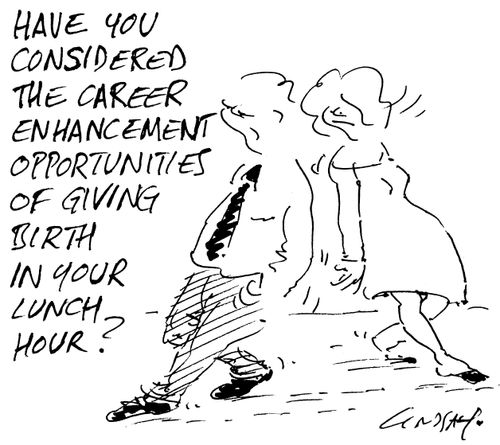 HAVE YOU
CONSIDERED
THE CAREER
ENHANCEMENT
OPPORTUNITIES
OF GIVING
BIRTH
IN YOUR
LUNCH
HOUR?
LINDSAY.